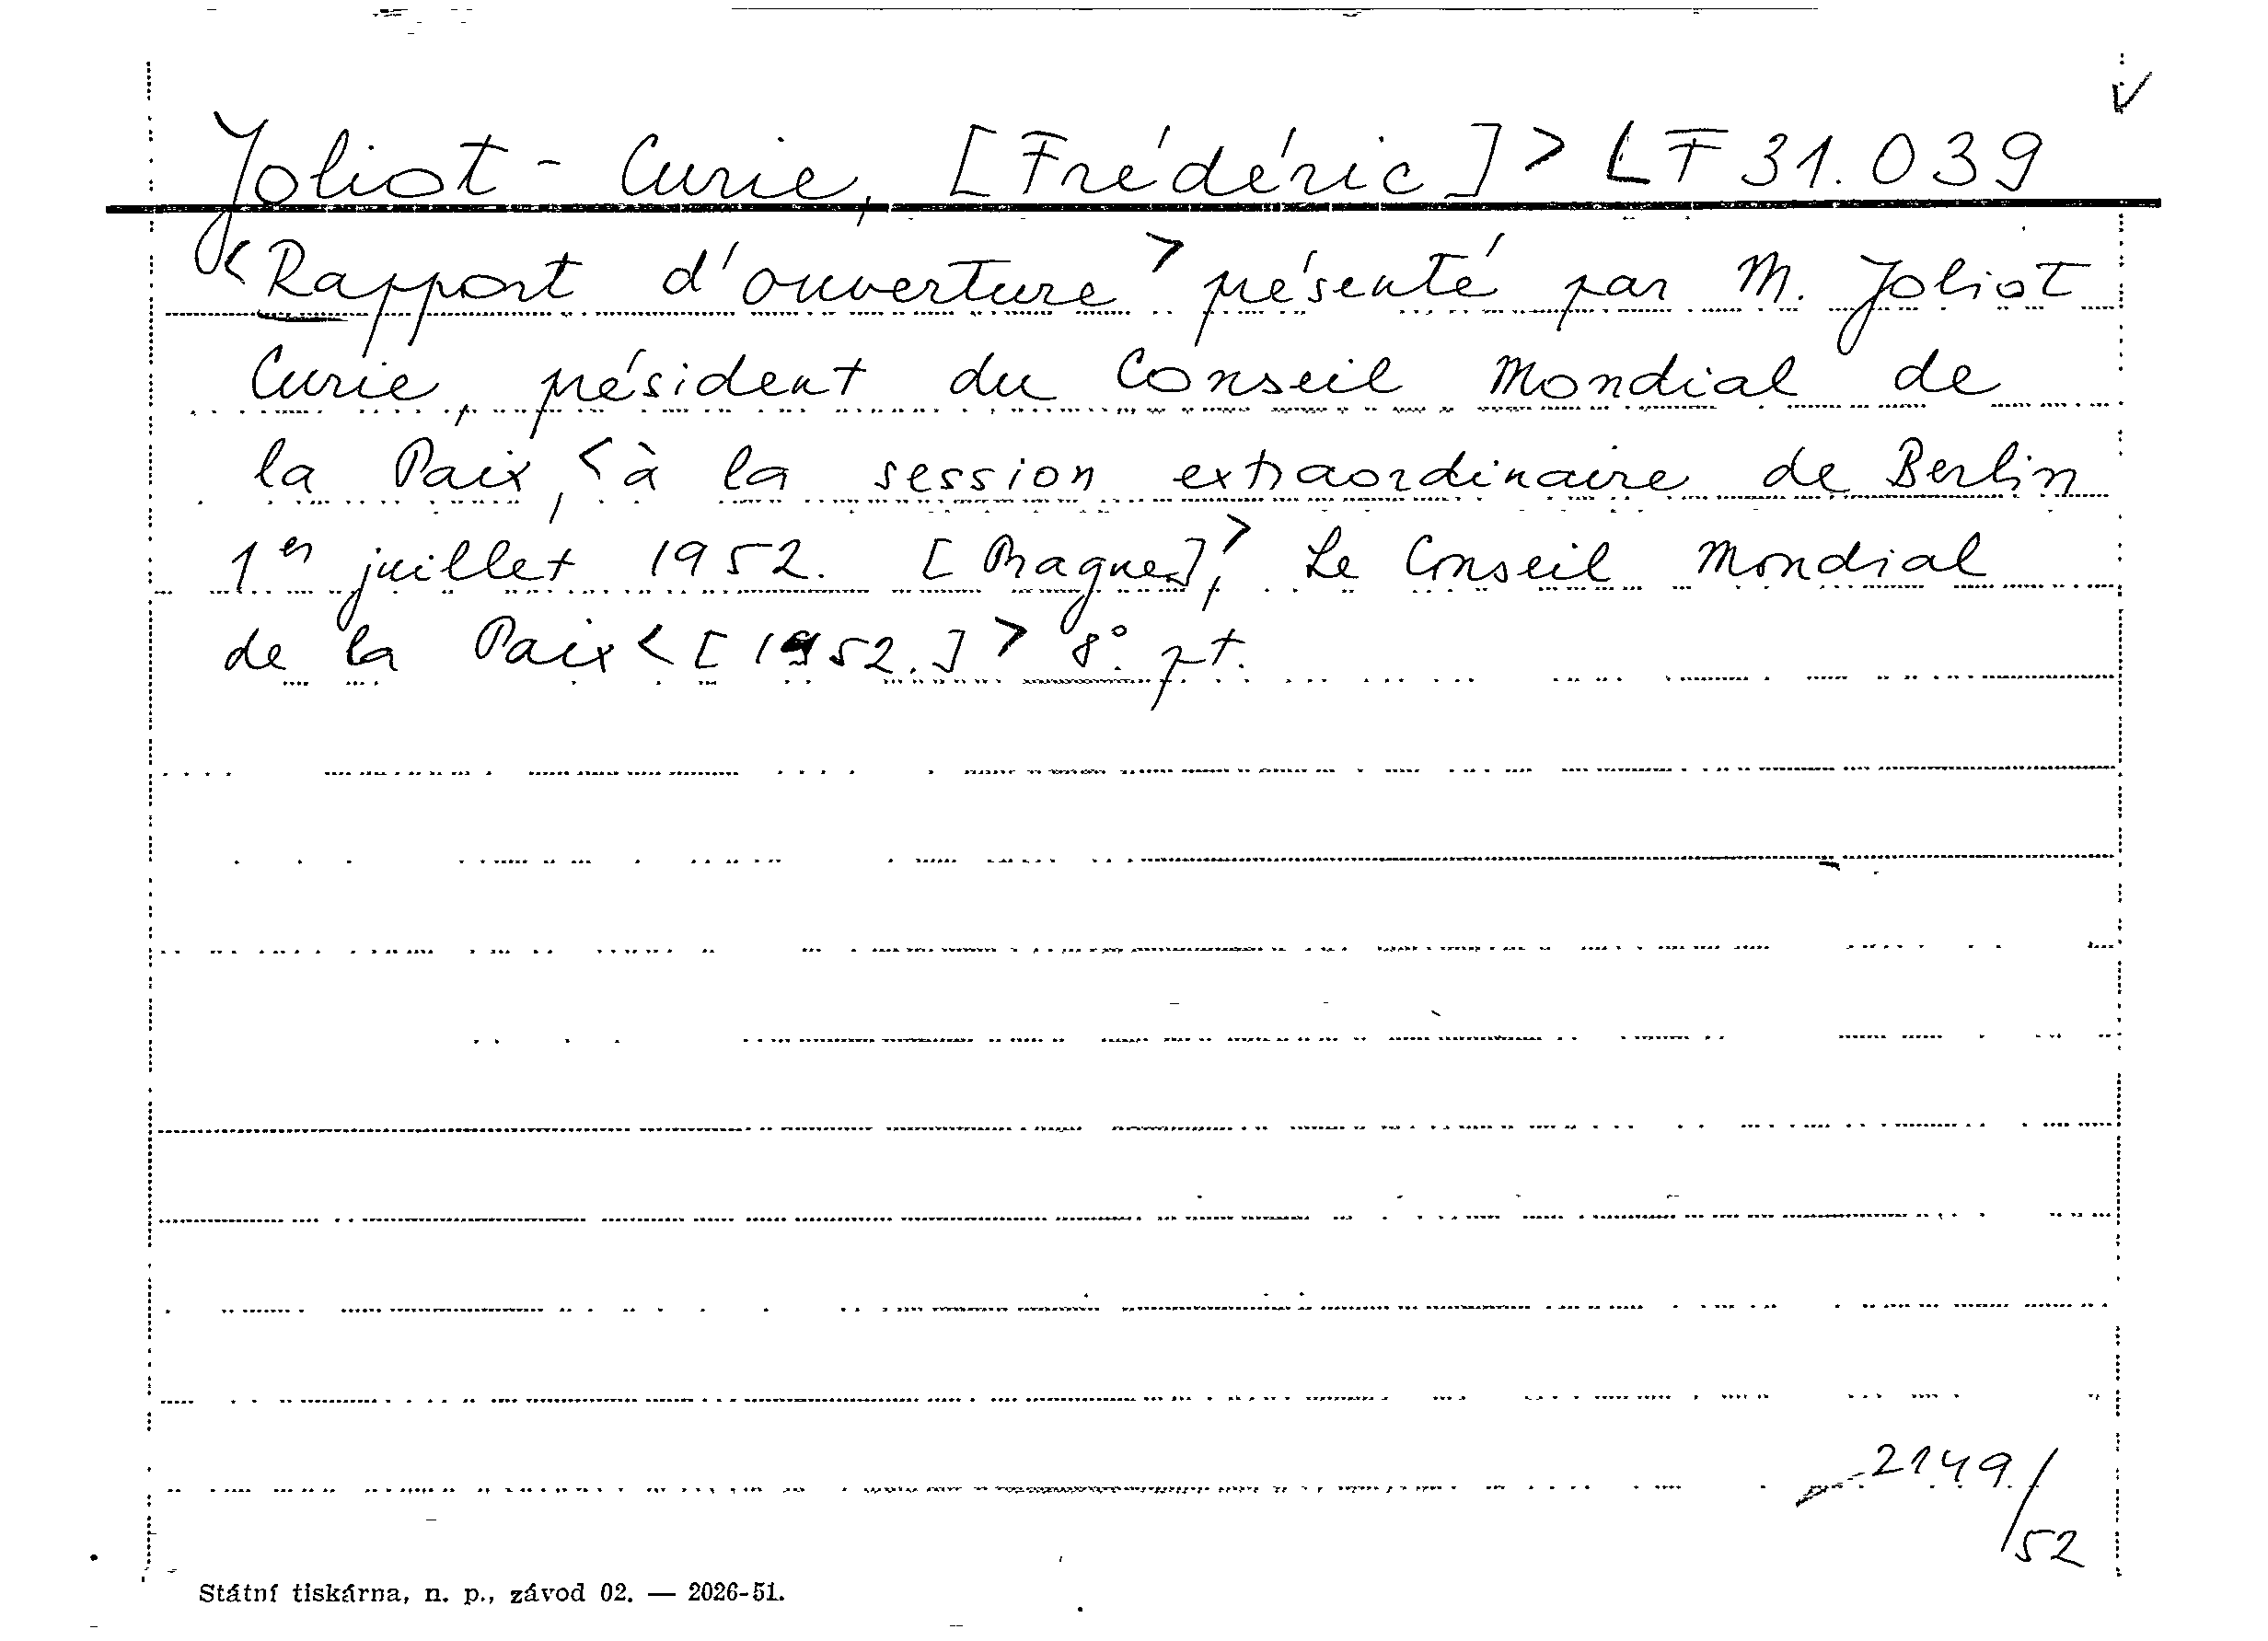 Joliot - Curie, [Frédéric] > LF 31.039
<Rapport d'ouverture> présenté par M. Joliot
Curie, président du Conseil Mondial de
la Paix, <à la session extraordinaire de Berlin
1er juillet 1952. [Prague],> Le Conseil Mondial
de la Paix < [1952.] > 8°. pt.
2149/52
Státní tiskárna, n. p., závod 02. — 2026-51.